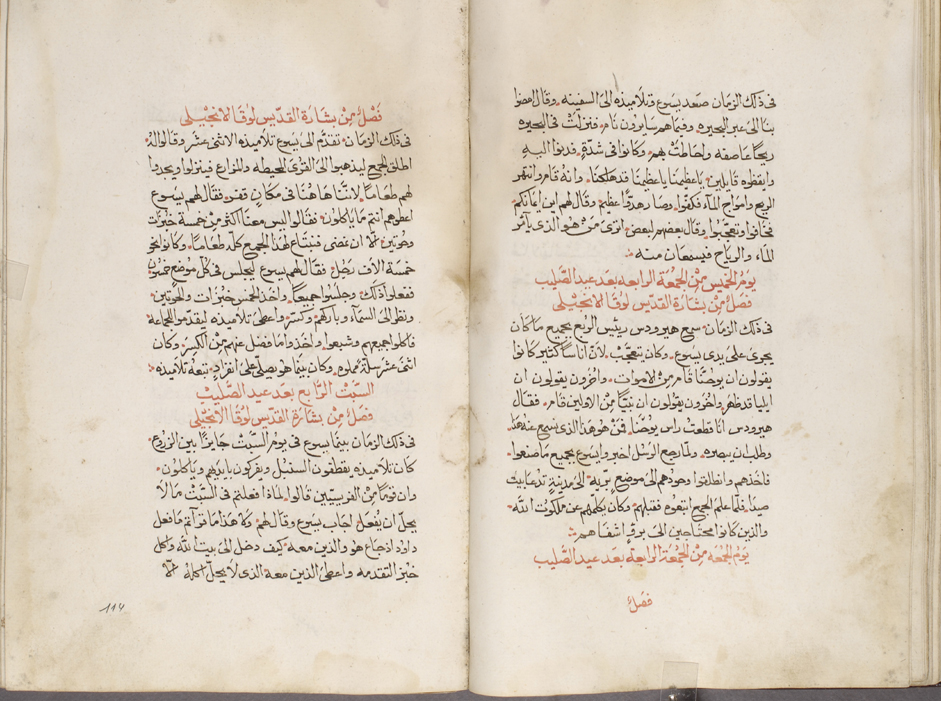 في ذلك الزمان صعد يسوع وتلاميذه الى السفينه وقال امضوا
بنا الى عبر البحيره وفيما هم سايرون نام فنزلت في البحيره
ريحاً عاصفه واحاطت بهم وكانوا في شدّةٍ فدنوا اليه
وايقظوه قايلين ياعظيمنا ياعظيمنا قد هلكنا وانهُ قام وانتهر
الريح وامواج المآء فكفّوا وصار هدوّاً عظيم وقال لهم اين ايمانكم
فخافوا وتعجّبوا وقال بعضهم لبعض اترى من هو الذي يأمر
الماء والرياح فيسمعان منه
يوم الخميس من الجمعة الرابعه بعد عيد الصليب
فصلٌ من بشارة القدّيس لوقا الانجيلي
في ذلك الزمان سمع هيرودس ريئس الربع بجميع ما كان
يجرى على يدى يسوع وكان يتعجّب لانّ اناساً كثير كانوا
يقولون ان يوحنّا قام من الاموات واخرون يقولون ان
ايليا قد ظهر واخرون يقولون ان نبيّاً من الاولين قام فقال
هيرودس انا قطعت راس يوحنّا فمن هو هذا الذي يسمع عنه هذا
وطلب ان يبصره ولما رجع الرسل اخبروا يسوع بجميع ما صنعوا
فاخذهم وانطلقوا وحدهم الى موضعٍ بريّه الى مدينةٍ تدعا بيت
صيدا فلما علم الجمع اتبعوه فقبلهم وكان يكلمهم عن ملكوت الله
والذين كانوا محتاجين الى بروٍ اشفاهم
يوم الجمعه من الجمعة الرابعه بعد عيد الصليب
فصلٌ
فصلٌ من بشارة القديس لوقا الانجيلي
في ذلك الزمان تقدّم الى يسوع تلاميذه الاثنى عشر وقالوا لهُ
اطلق الجمع ليذهبوا الى القرى المحيطه والمزارع فينزلوا ويجدوا
لهم طعاماً لاننا هاهنا في مكانٍ قفر فقال لهم يسوع
اعطوهم انتم ما ياكلون فقالوا ليس معنا اكثر من خمسة خبزات
وحوتين الّا ان نمضى فنبتاع لهذا الجمع كلّه طعاماً وكانوا نحو
خمسة الاف رجل فقال لهم يسوع ليجلس في كلّ موضعٍ خمسون
ففعلوا ذلك وجلسوا جميعاً واخذ الخمس خبزات والحوتين
ونظر الى السمآء وباركهم وكسر واعطى تلاميذه ليقدّموا للجماعة
فاكلوا جميعهم وشبعوا واخذوا ما فضل عنهم من الكسر وكان
اثنى عشر سلّة مملوه وكان بينما هو يصلّي على انفرادٍ تبعه تلاميذه
السبت الرابع بعد عيد الصليب
فصلٌ من بشارة القديس لوقا الانجيلي
في ذلك الزمان بينما يسوع في يوم السبت جايزاً بين الزروع
كان تلاميذه يقطفون السنبل ويفركون بايديهم وياكلون
وان قوماً من الفريسيّين قالوا لماذا فعلتم في السبت ما لا
يحلّ ان يُفعل اجاب يسوع وقال لهم وَهذا ما قرآتم ما فعل
داود اذ جاع هو والذين معه كيف دخل الى بيت الله واكل
خبز التقدمه واعطى الذين معه الذى لا يحلّ اكلهُ الّا
114